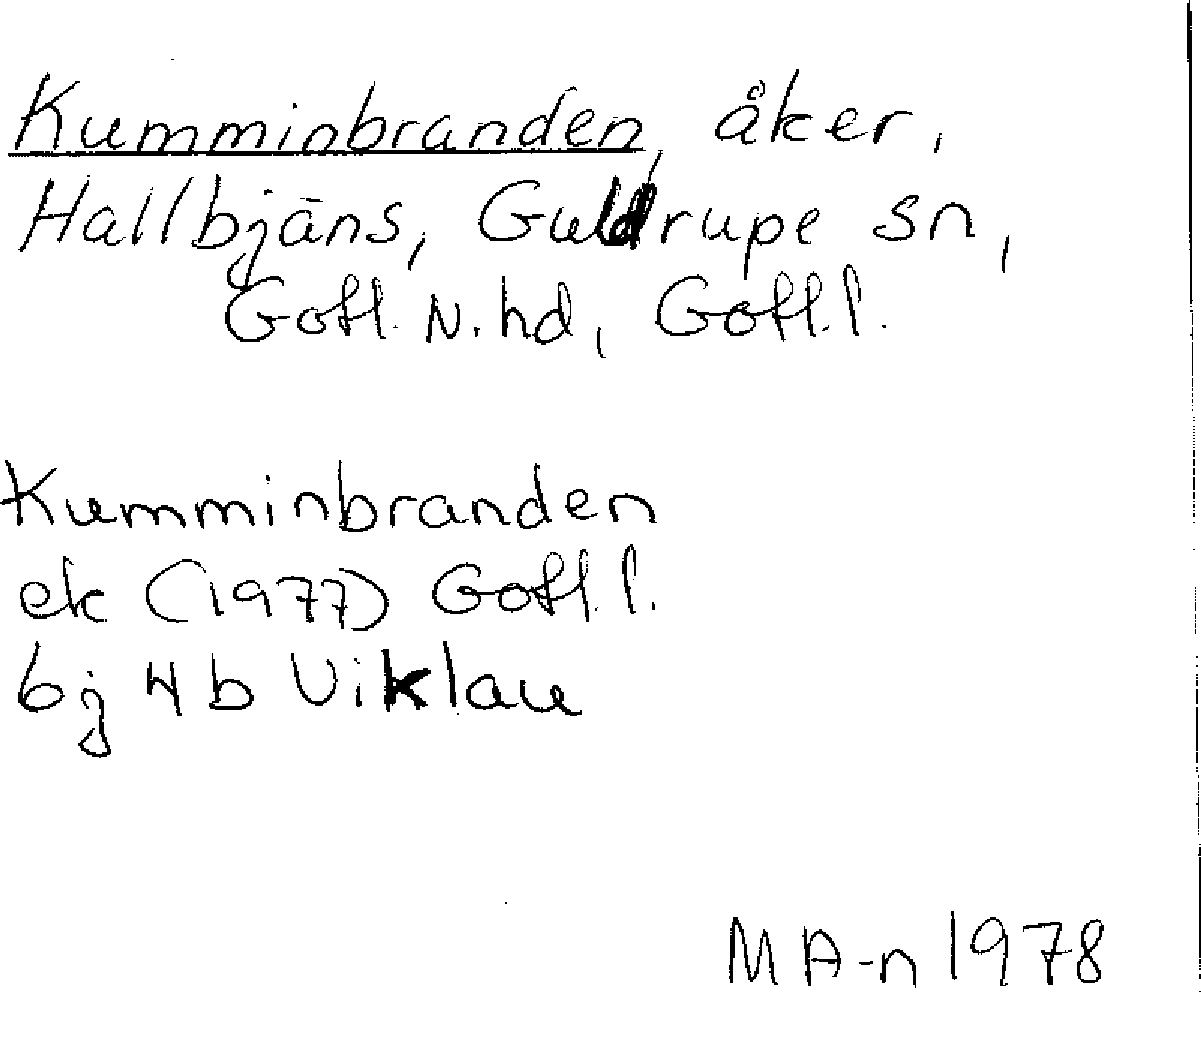 Kumminbranden, åker,
Hallbjäns, Guldrupe sn,
Gotl. N. hd, Gotl. l.
Kumminbranden
ek (1977) Gotl. l.
6j 4b Viklau
MA-n 1978